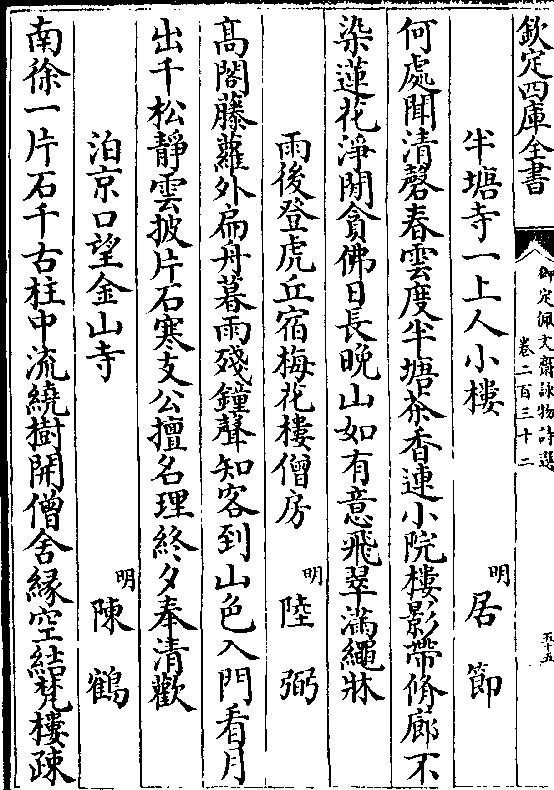 欽定四庫全書
御定佩文齋詠物詩選 卷二百三十二 五十五
半塘寺一上人小樓 明 居節
何處聞清磬春雲度半塘茶香連小院樓影帶脩廊不
染蓮花淨閒貪佛日長晚山如有意飛翠滿繩牀
雨後登虎丘宿梅花樓僧房 明 陸弼
高閣藤蘿外扁舟暮雨殘鐘聲知客到山色入門看月
出千松靜雲披片石寒支公擅名理終夕奉清歡
泊京口望金山寺 明 陳鶴
南徐一片石千古柱中流繞樹開僧舍緣空結梵樓疎